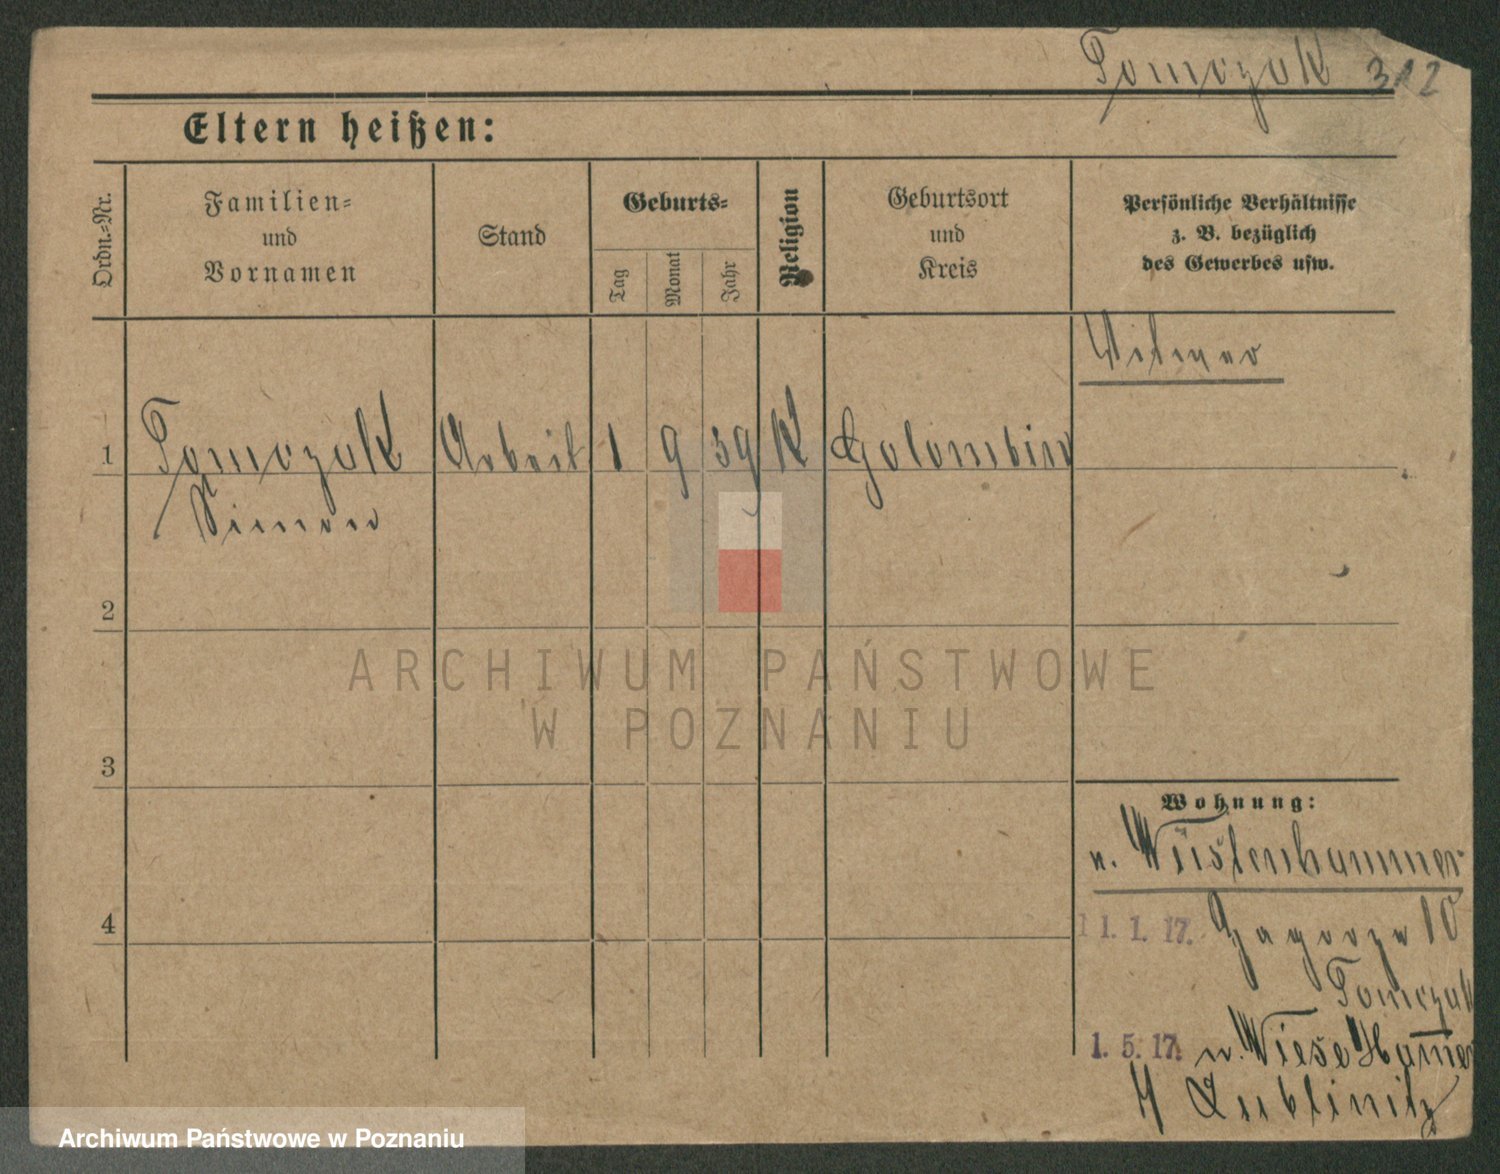 Tomczak 312
Eltern heißen:
Ordn.-Nr.
Familien-
und
Vornamen
Stand
Geburts-
Tag
Monat
Jahr
Religion
Geburtsort
und
Kreis
Persönliche Verhältnisse
z. B. bezüglich
des Gewerbes usw.
Witwer
1 Tomczak Arbeit 1 9 39 K Golombin
Simon
2
3
4
Wohnung:
n. Wüstenhammer
11.1.17. Zagorze 10
Tomczak
1.5.17. n. Wiese Hammer
Lublinitz
ARCHIWUM PAŃSTWOWE
W POZNANIU
Archiwum Państwowe w Poznaniu